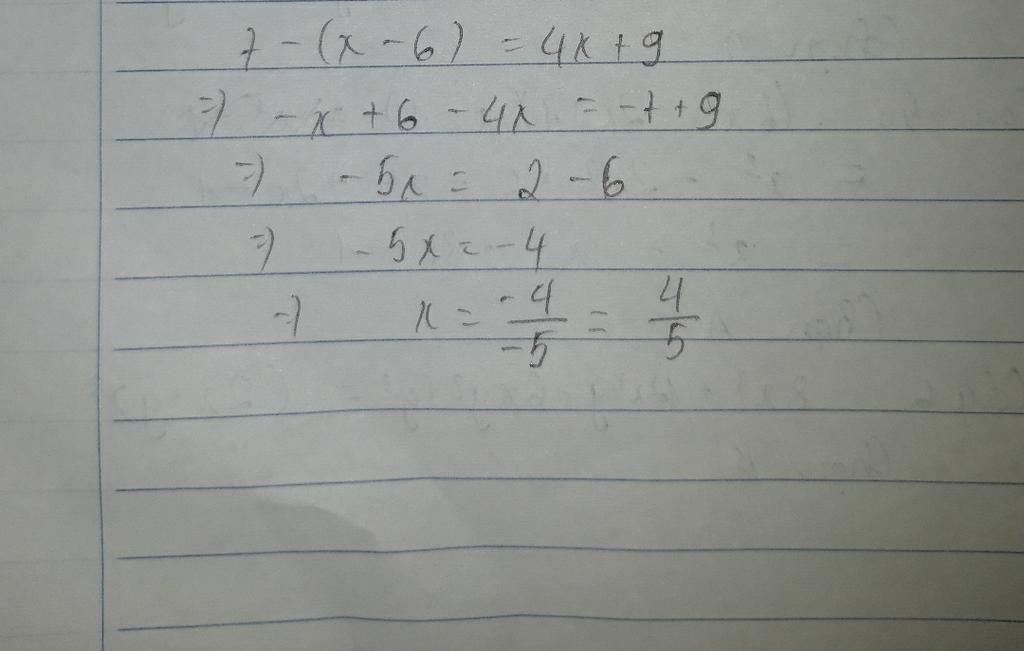 7 - (x - 6) = 4x + 9
=) - x + 6 - 4x = -7 + 9
=) - 5x = 2 - 6
=) - 5x = - 4
=) x = -4/-5 = 4/5